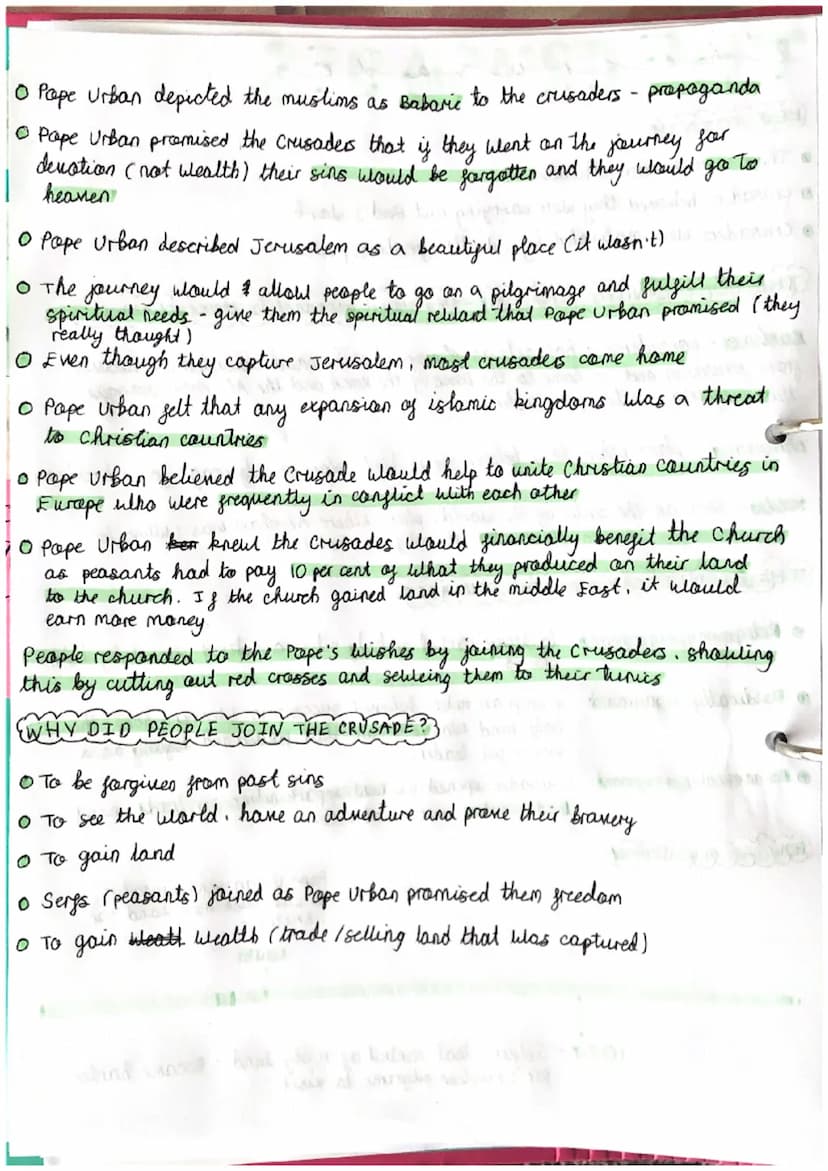 Pope Urban depicted the muslims as Babaric to the crusaders - propaganda
Pope Urban promised the Crusaders that if they went on the journey for
devotion (not wealth) their sins would be forgotten and they would go to
heaven
Pope Urban described Jerusalem as a beautiful place (it wasn't)
The journey would allow people to go on a pilgrimage and fulfill their
spiritual needs - give them the spiritual reward that Pope Urban promised (they
really thought)
Even though they capture Jerusalem, most crusades came home
Pope Urban felt that any expansion of islamic kingdoms was a threat
to Christian countries
Pope Urban believed the Crusade would help to unite Christian countries in
Europe who were frequently in conflict with each other
Pope Urban knew the Crusades would financially benefit the Church
as peasants had to pay 10 per cent of what they produced on their land
to the church. If the church gained land in the middle East, it would
earn more money
People responded to the Pope's wishes by joining the Crusaders, showing
this by cutting out red crosses and seweing them to their tunics
WHY DID PEOPLE JOIN THE CRUSADE?
To be forgiven from past sins
To see the world, have an adventure and prove their bravery
To gain land
Serfs (peasants) joined as Pope Urban promised them freedom
To gain wealth (trade/selling land that was captured)